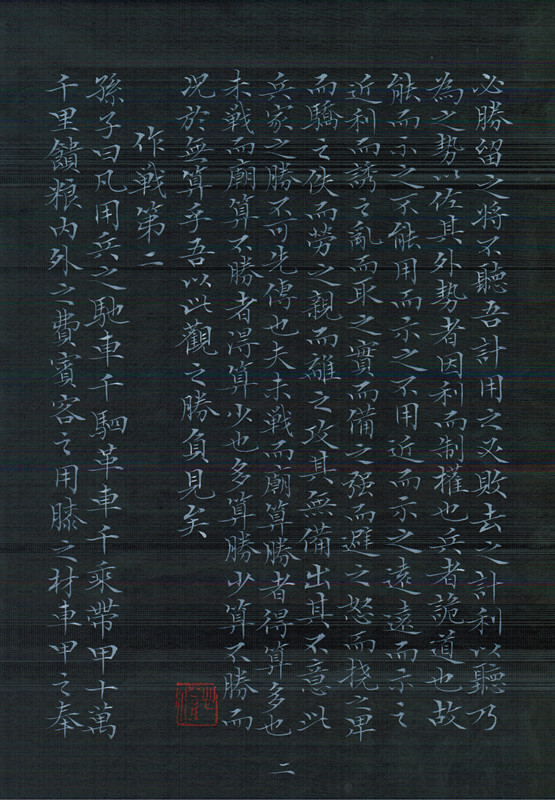 必勝留之将不聽吾計用之必敗去之計利以聽乃
為之勢以佐其外勢者因利而制權也兵者詭道也故
能而示之不能用而示之不用近而示之遠遠而示之
近利而誘之亂而取之實而備之强而避之怒而撓之卑
而驕之佚而勞之親而離之攻其無備出其不意此
兵家之勝不可先傳也夫未戰而廟算勝者得算多也
未戰而廟算不勝者得算少也多算勝少算不勝而
況於無算乎吾以此觀之勝負見矣
作戰第二
孫子曰凡用兵之馳車千駟革車千乘帶甲十萬
千里饋粮內外之費賓客之用膝之材車甲之奉
二